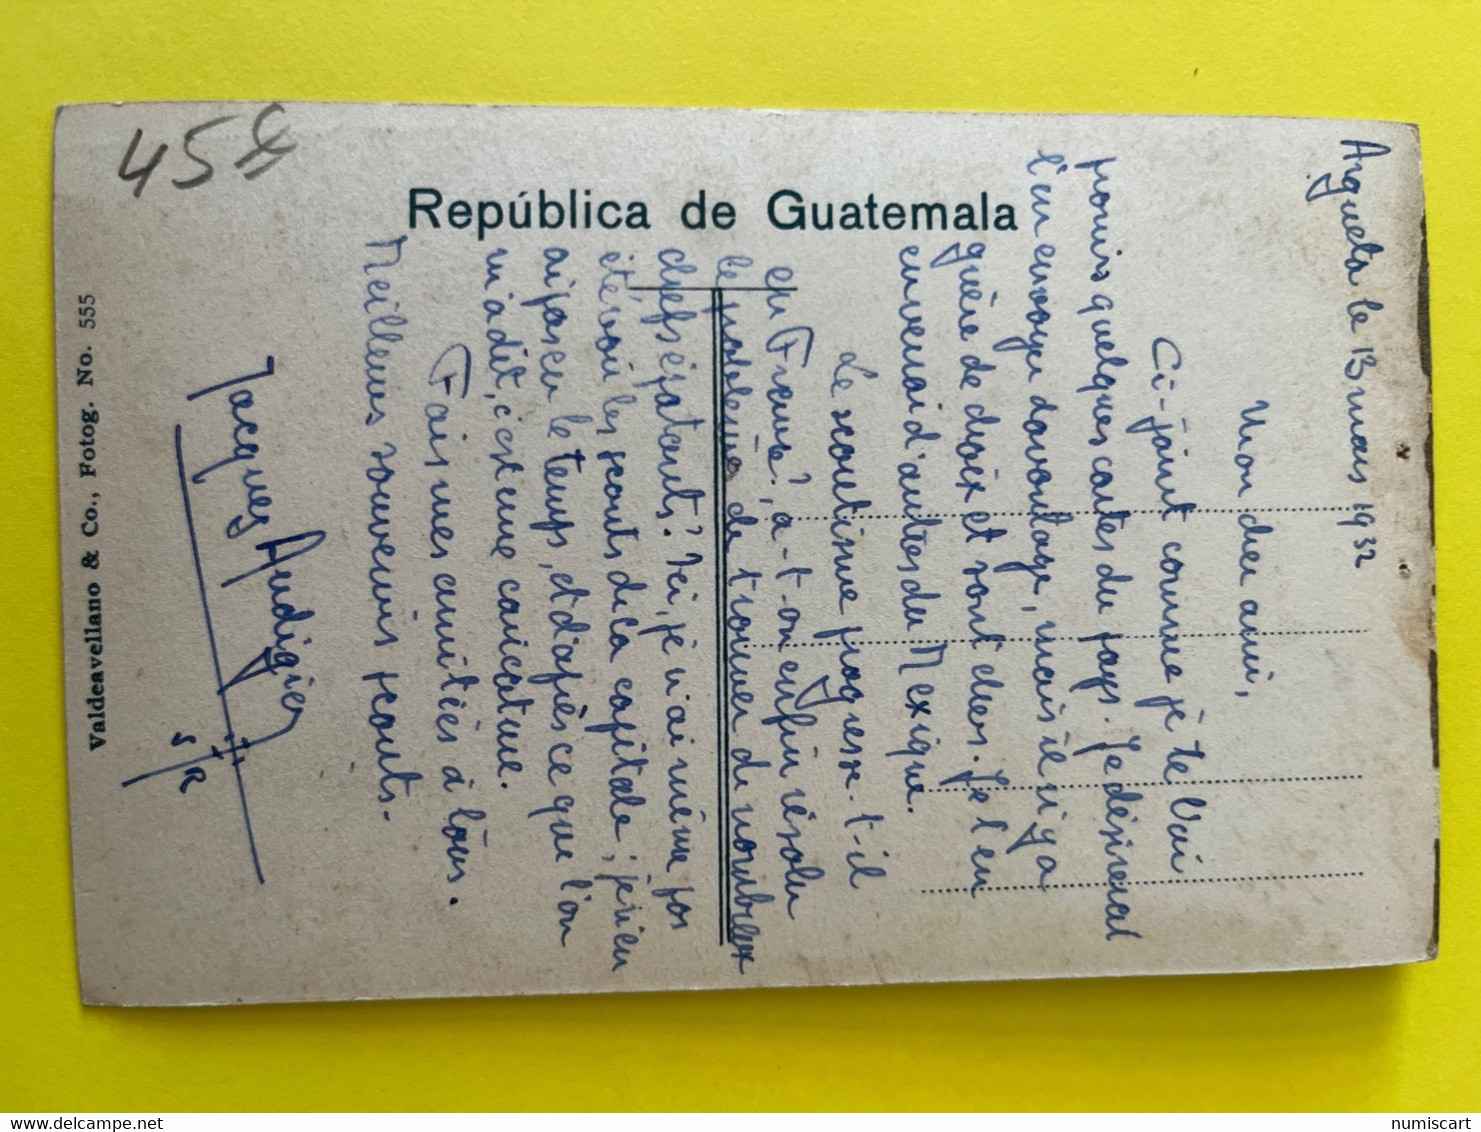 República de Guatemala
Valdeavellano & Co., Fotog. No. 555
45
Argueta le 13 mars 1932
Mon cher ami,
Ci-joint comme je te l'ai
promis quelques cartes du pays. Je désirerai
t'en envoyer davantage, mais il n'y a
guère de choix et sont chers. Je t'en
enverrai d'autres du Mexique.
Le scoutisme progresse-t-il
en France?, a-t-on enfin résolu
le problème de trouver de nombreux
chefs épatants? Ici, je n'ai même pas
été voir les scouts de la capitale; je n'en
ai pas eu le temps, et d'après ce que l'on
m'a dit, c'est une caricature.
Fais mes amitiés à tous.
Meilleurs souvenirs scouts.
Jacques Audigier
S
R
numiscart